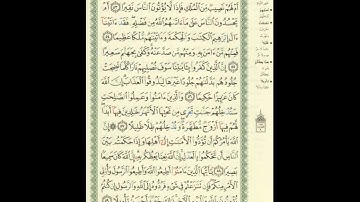 أَمْ لَهُمْ نَصِيبٌ مِّنَ ٱلْمُلْكِ فَإِذًا لَّا يُؤْتُونَ ٱلنَّاسَ نَقِيرًا ٥٣ أَمْ
يَحْسُدُونَ ٱلنَّاسَ عَلَىٰ مَآ ءَاتَىٰهُمُ ٱللَّهُ مِن فَضْلِهِۦ فَقَدْ ءَاتَيْنَآ
ءَالَ إِبْرَٰهِيمَ ٱلْكِتَٰبَ وَٱلْحِكْمَةَ وَءَاتَيْنَٰهُم مُّلْكًا عَظِيمًا ٥٤
فَمِنْهُم مَّنْ ءَامَنَ بِهِۦ وَمِنْهُم مَّن صَدَّ عَنْهُ وَكَفَىٰ بِجَهَنَّمَ سَعِيرًا
٥٥ إِنَّ ٱلَّذِينَ كَفَرُوا۟ بِـَٔايَٰتِنَا سَوْفَ نُصْلِيهِمْ نَارًا كُلَّمَا نَضِجَتْ
جُلُودُهُم بَدَّلْنَٰهُمْ جُلُودًا غَيْرَهَا لِيَذُوقُوا۟ ٱلْعَذَابَ إِنَّ ٱللَّهَ
كَانَ عَزِيزًا حَكِيمًا ٥٦ وَٱلَّذِينَ ءَامَنُوا۟ وَعَمِلُوا۟ ٱلصَّٰلِحَٰتِ
سَنُدْخِلُهُمْ جَنَّٰتٍ تَجْرِى مِن تَحْتِهَا ٱلْأَنْهَٰرُ خَٰلِدِينَ فِيهَآ أَبَدًا
لَّهُمْ فِيهَآ أَزْوَٰجٌ مُّطَهَّرَةٌ وَنُدْخِلُهُمْ ظِلًّا ظَلِيلًا ٥٧ إِنَّ ٱللَّهَ
يَأْمُرُكُمْ أَن تُؤَدُّوا۟ ٱلْأَمَٰنَٰتِ إِلَىٰٓ أَهْلِهَا وَإِذَا حَكَمْتُم بَيْنَ
ٱلنَّاسِ أَن تَحْكُمُوا۟ بِٱلْعَدْلِ إِنَّ ٱللَّهَ نِعِمَّا يَعِظُكُم بِهِۦٓ إِنَّ ٱللَّهَ كَانَ سَمِيعًۢا
بَصِيرًا ٥٨ يَٰٓأَيُّهَا ٱلَّذِينَ ءَامَنُوٓا۟ أَطِيعُوا۟ ٱللَّهَ وَأَطِيعُوا۟ ٱلرَّسُولَ وَأُو۟لِى
ٱلْأَمْرِ مِنكُمْ فَإِن تَنَٰزَعْتُمْ فِى شَىْءٍ فَرُدُّوهُ إِلَى ٱللَّهِ وَٱلرَّسُولِ إِن كُنتُمْ